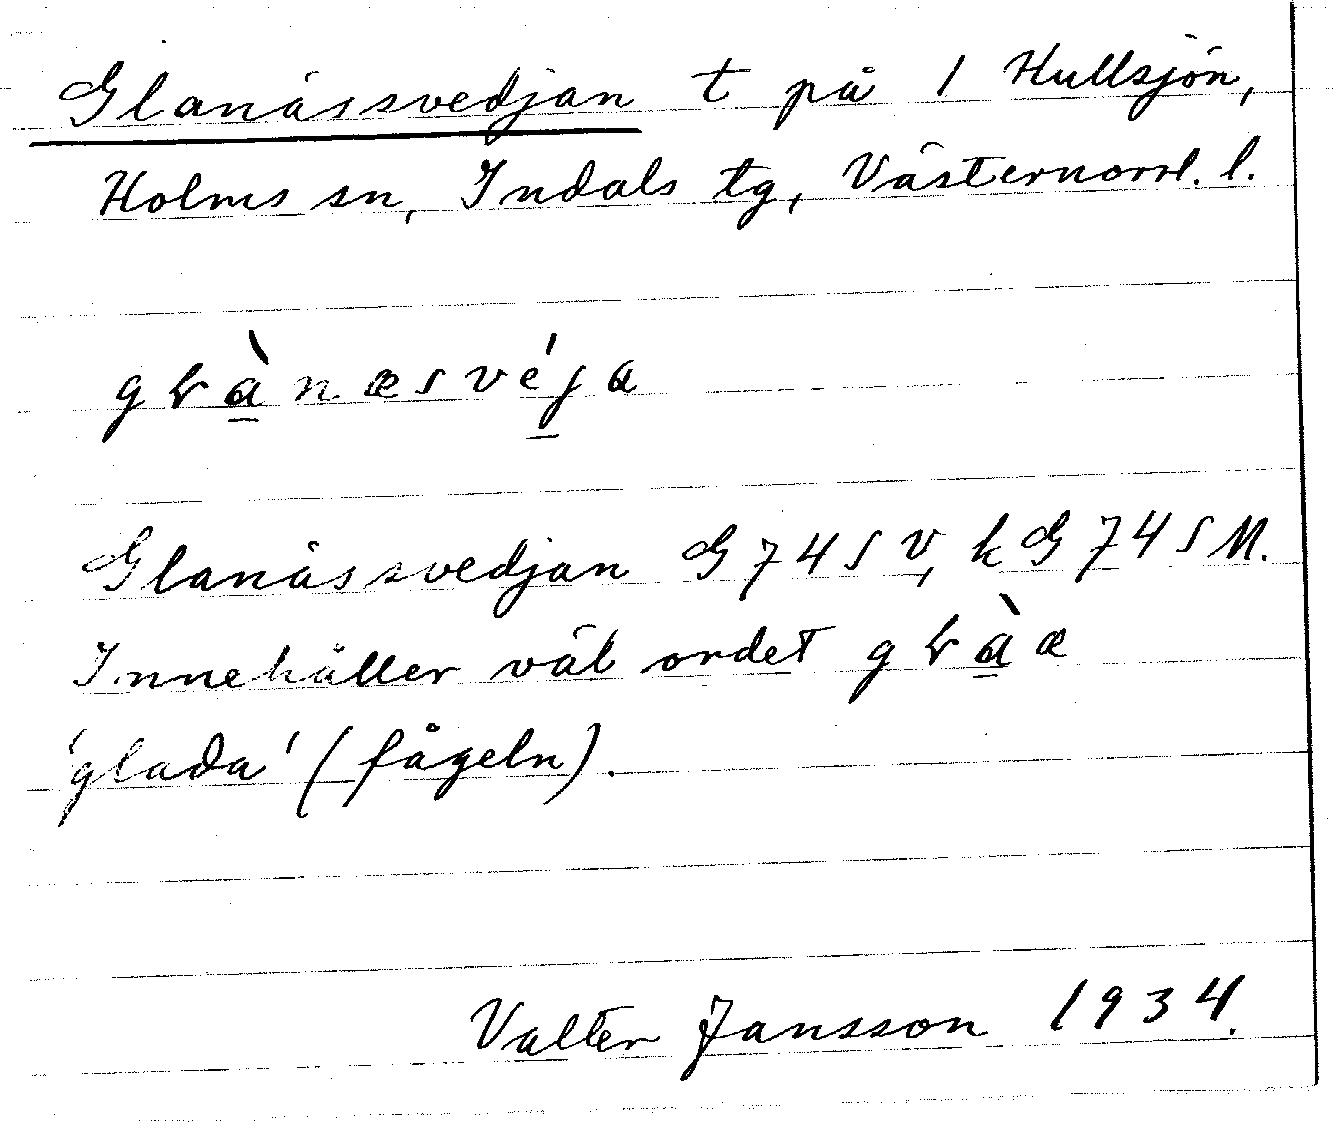 Glanåssvedjan t på 1 Hullsjön,
Holms sn, Indals tg, Västernorrl. l.
gɽà̠næsvé̠ja
Glanåssvedjan G 74 S V, k G 74 S M.
Innehåller väl ordet gɽà̠æ
'glada' (fågeln).
Valter Jansson 1934.